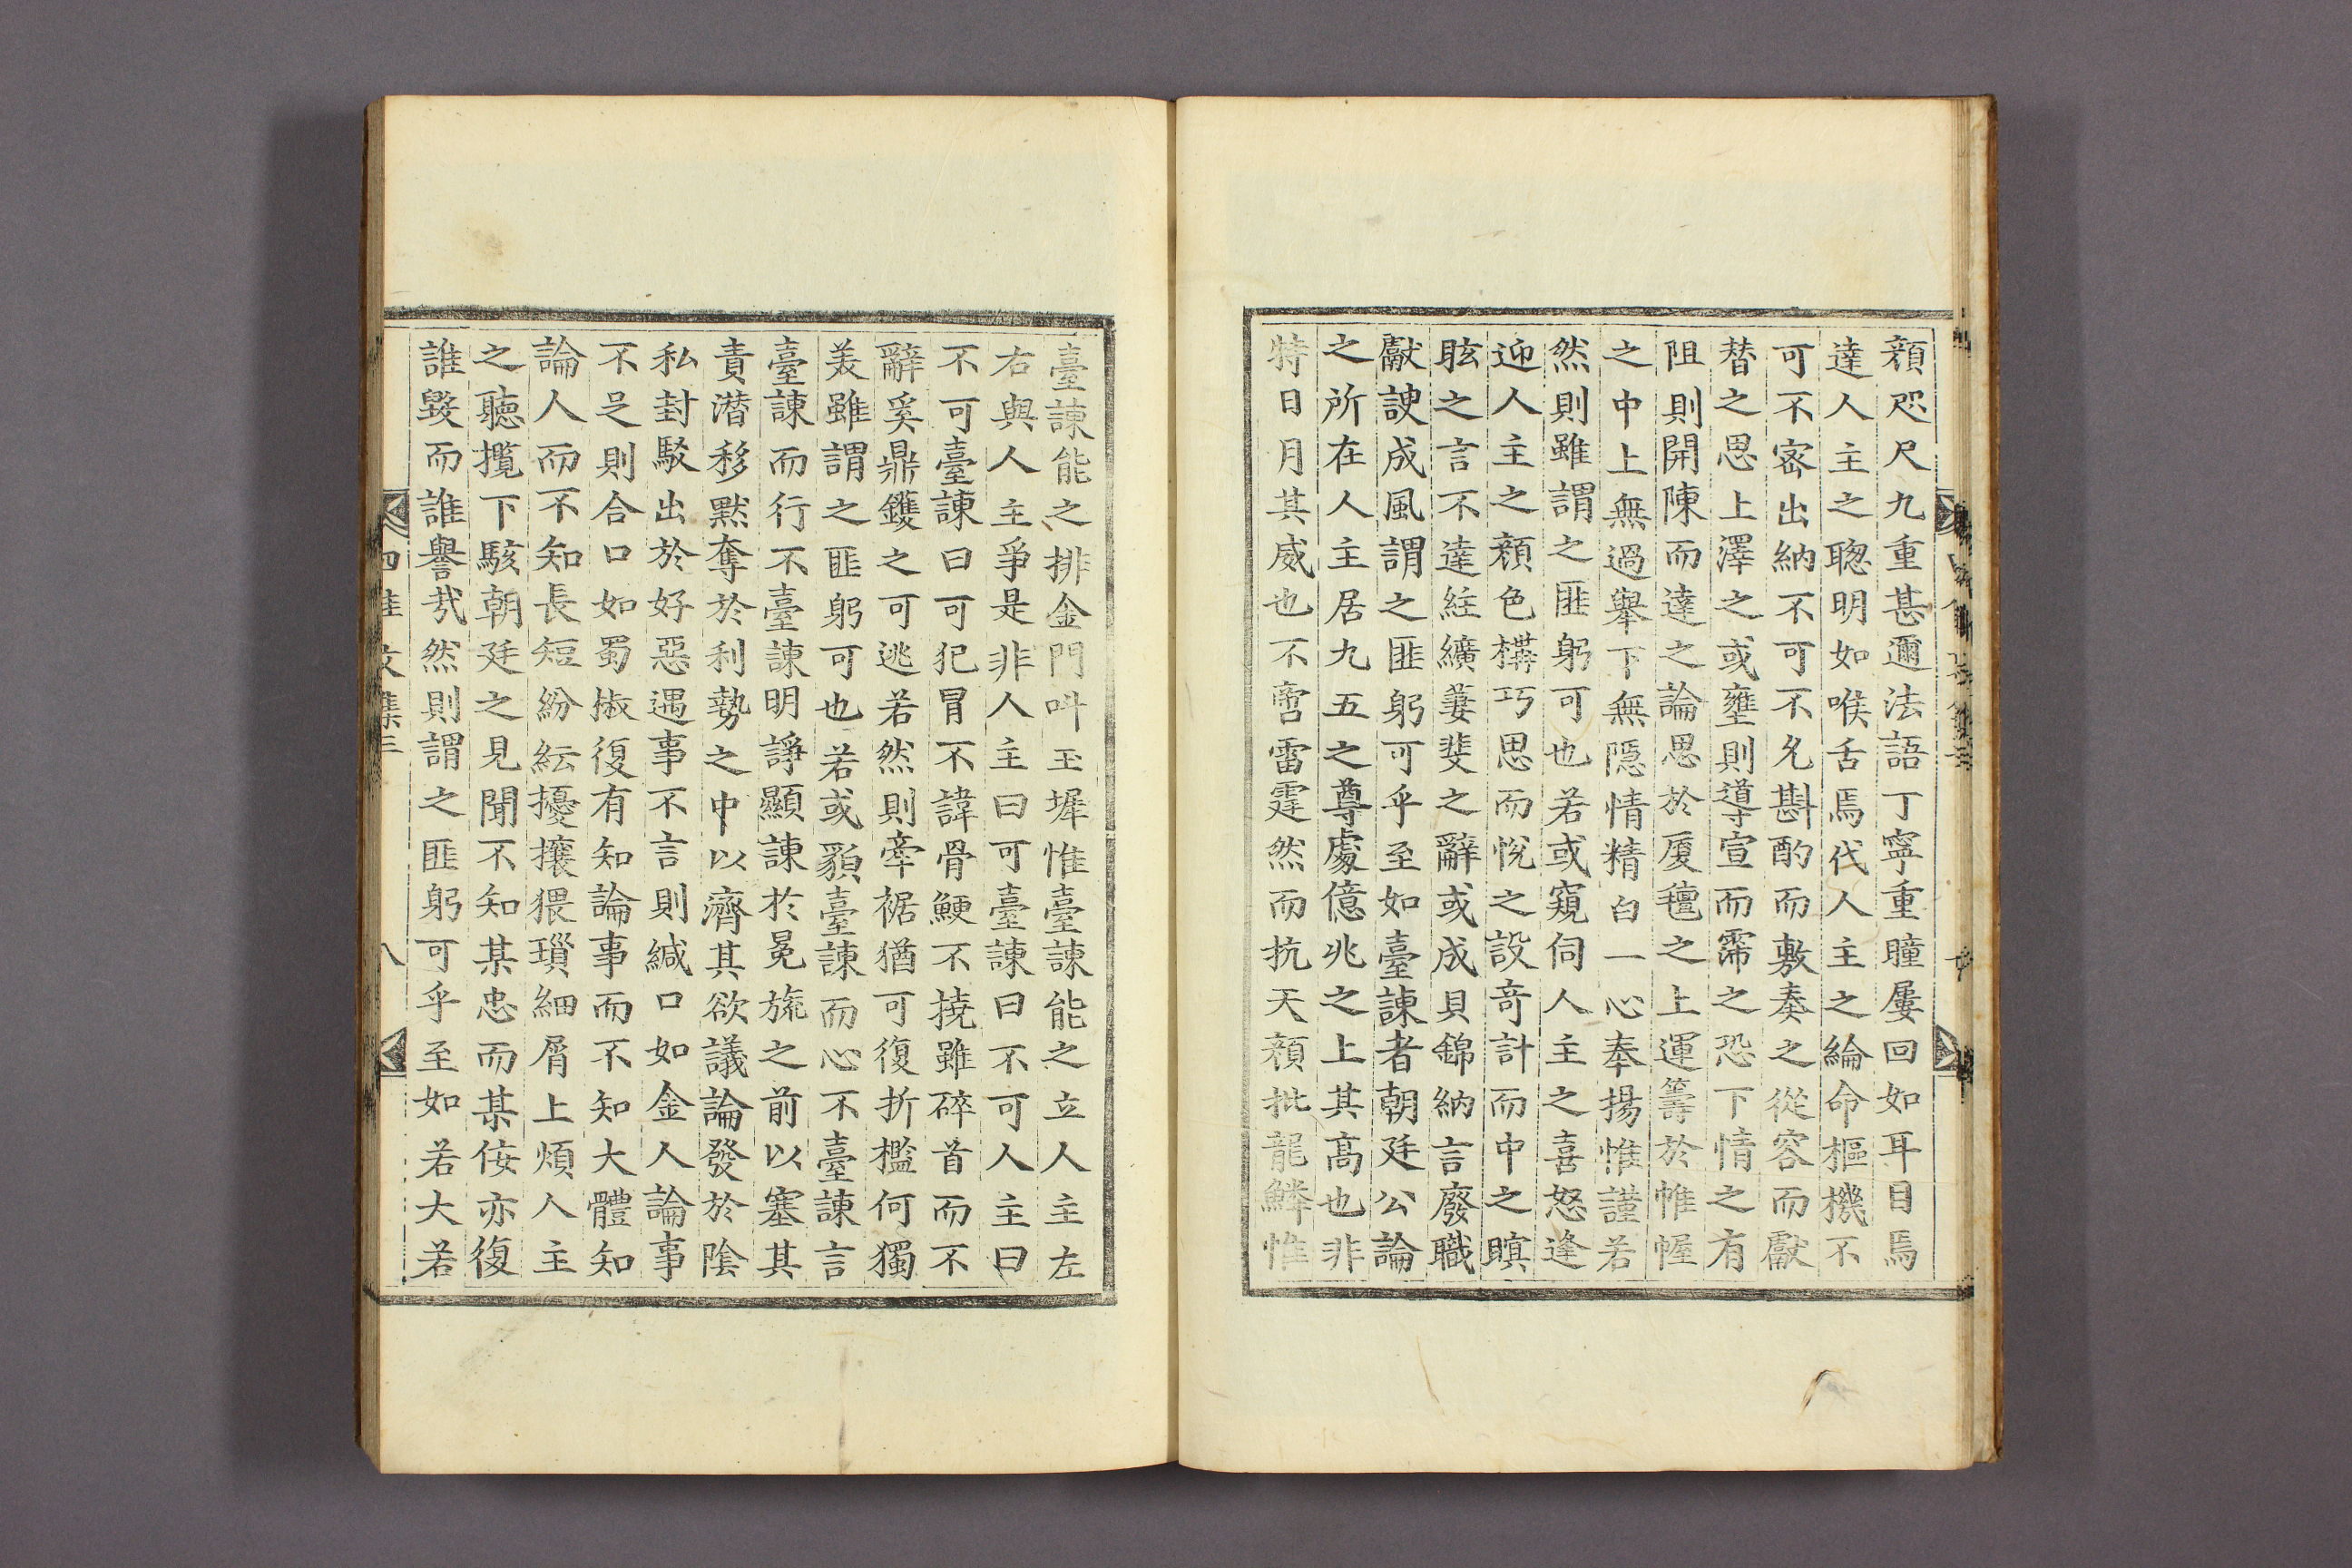 顔咫尺九重甚邇法語丁寧重瞳屢回如耳目焉
達人主之聦明如喉舌焉代人主之綸命樞機不
可不密出納不可不允斟酌而敷奏之從容而獻
替之思上澤之或壅則導宣而霈之恐下情之有
阻則開陳而達之論思於厦氊之上運籌於帷幄
之中上無過舉下無隱情精白一心奉揚惟謹若
然則雖謂之匪躬可也若或窺伺人主之喜怒逢
迎人主之顔色構巧思而悅之設竒計而中之瞑
眩之言不達絓纊萋斐之辭或成貝錦納言廢職
獻諛成風謂之匪躬可乎至如臺諫者朝廷公論
之所在人主居九五之尊處億兆之上其高也非
特日月其威也不啻雷霆然而抗天顔批龍鱗惟
臺諫能之排金門叫玉墀惟臺諫能之立人主左
右與人主爭是非人主曰可臺諫曰不可人主曰
不可臺諫曰可犯冒不諱骨鯁不撓雖碎首而不
辭奚鼎鑊之可逃若然則牽裾猶可復折檻何獨
美雖謂之匪躬可也若或顙臺諫而心不臺諫言
臺諫而行不臺諫明諍顯諫於冕旒之前以塞其
責潜移黙奪於利勢之中以濟其欲議論發於陰
私封駁出於好惡遇事不言則緘口如金人論事
不足則合口如蜀椒復有知論事而不知大體知
論人而不知長短紛紜擾攘猥瑣細屑上煩人主
之聽攬下駭朝廷之見聞不知某忠而某佞亦復
誰毀而誰譽㢤然則謂之匪躬可乎至如若大若
四佳文集三
八